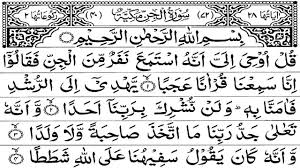 اٰیَاتُهَا ٢٨ (٧٢) سُوْرَةُ الْجِنِّ مَكِّیَّةٌ (٤٠) رُكُوْعَاتُهَا ٢
بِسْمِ اللّٰهِ الرَّحْمٰنِ الرَّحِیْمِ
قُلْ اُوْحِیَ اِلَیَّ اَنَّهُ اسْتَمَعَ نَفَرٌ مِّنَ الْجِنِّ فَقَالُوْۤا
اِنَّا سَمِعْنَا قُرْاٰنًا عَجَبًا ۙ یَّهْدِیْۤ اِلَی الرُّشْدِ
فَاٰمَنَّا بِهٖ ؕ وَلَنْ نُّشْرِكَ بِرَبِّنَاۤ اَحَدًا ۙ وَّاَنَّهٗ
تَعٰلٰی جَدُّ رَبِّنَا مَا اتَّخَذَ صَاحِبَةً وَّلَا وَلَدًا ۙ
وَّاَنَّهٗ كَانَ یَقُوْلُ سَفِیْهُنَا عَلَی اللّٰهِ شَطَطًا ۙ